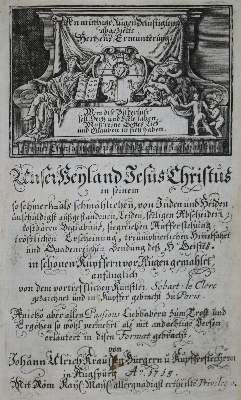 Anmüthige Augen Belustigung
absonderliche
Hertzens Ermunterung
Wen die Bücherlust
soll Hertz und Seele laben,
Muß reine Gottes Lieb
und Glauben in sich haben.
Unser Heyland Jesus Christus
in seinem
so schmertzhafft schmählichen, von Jüden und Heyden
unschuldigst ausgestandenen Leiden, seeligen Abscheiden,
kostbaren Begräbnus, siegreichen Aufferstehung
tröstlichen Erscheinung, triumphierlichen Himelfahrt
und Gnadenreicher Sendung des H. Geists,
in schönen Kupffern vor Augen gemahlet,
anfänglich
von dem vortrefflichen Künstler Sebast. le Clerc
gezeichnet und in Kupffer gebracht zu Paris.
Anietzo aber allen Passions Liebhabern zum Trost und
Ergehen so wohl vermehrt als mit andächtige Versen
erläutert in disen Format gebracht
von
Johann Ulrich Kraußen Burgern u Kupfferstechern
in Augspurg A. 1713.
Mit Röm. Kays. Mayst. allergnädigst ertheilte Privilegio.